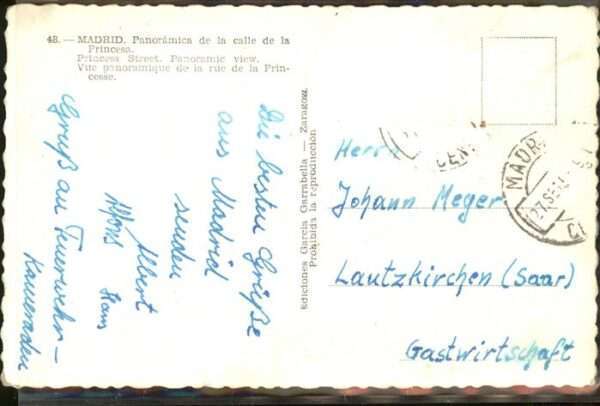 48. — MADRID. Panorámica de la calle de la
Princesa.
Princess Street. Panoramic view.
Vue panoramique de la rue de la Prin-
cesse.
Die besten Grüße
aus Madrid
senden
Albert
Alfons
Hans
Gruß an Feuerwehr-
Kameraden
Ediciones García Garrabella — Zaragoza
Prohibida la reproducción
Herrn
Johann Meger
Lautzkirchen (Saar)
Gastwirtschaft
CEN
MADR